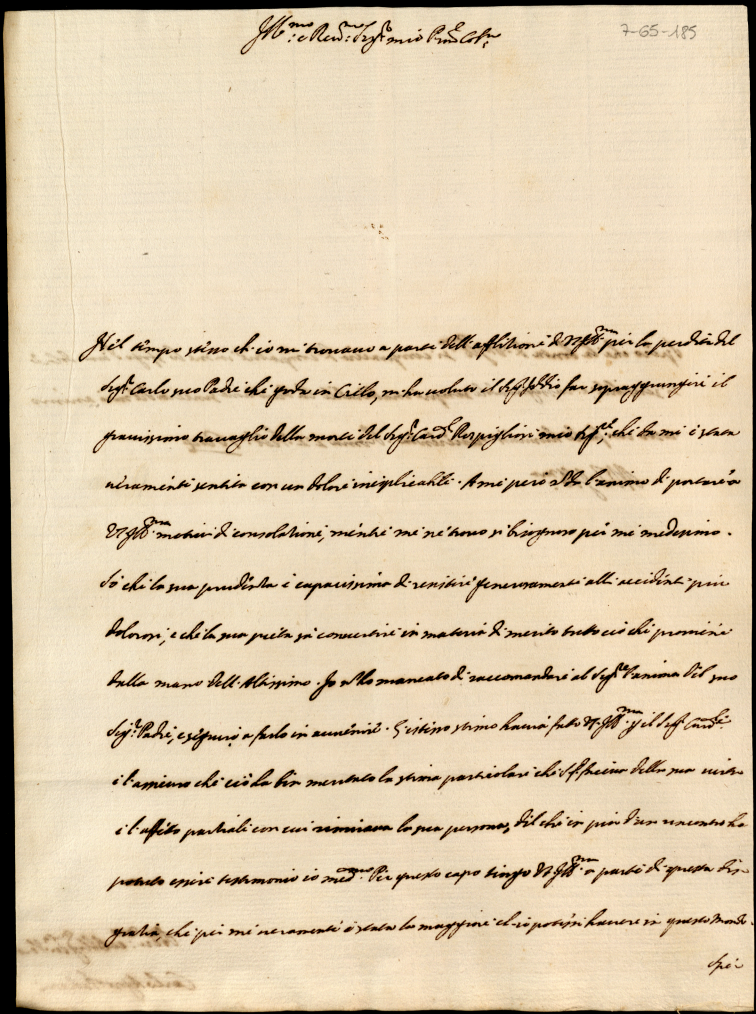 Ill.mo e Rev.mo Sig.r mio P.ron Col.mo
7-65-185
Nel tempo stesso ch'io mi trovavo a parte dell'aflitione di V.S. Ill.ma per la perdita del
Sig.r Carlo suo Padre che goda in Cielo, m'ha voluto il Sig.r Iddio far sopraggiungere il
gravissimo travaglio della morte del Sig.r Card.l Rospigliosi mio Sig.re, che da me è stata
veramente sentita con un dolore inesplicabile. A me però non dà l'animo di portare a
V.S. Ill.ma motivi di consolatione, mentre me ne trovo sì bisognoso per me medesimo.
Sò che la sua prudenza è capacissima di resistere generosamente alli accidenti più
dolorosi, e che la sua pietà sà convertire in materia di merito tutto ciò che proviene
dalla mano dell'Altissimo. Io non hò mancato di raccomandare al Sig.re l'anima del suo
Sig.r Padre, e seguirò a farlo in avvenire. L'istesso stimo haverà fatto V.S. Ill.ma p il Sig.r Card.le
e l'assicuro che ciò ha ben meritato la stima particolare che S.E. faceva della sua virtù
e l'affetto partiale con cui rimirava la sua persona, del che in più d'un incontro ho
potuto essere testimonio io med.mo Per questo capo tengo V.S. Ill.ma a parte di questa dis-
gratia, che per me veramente è stata la maggiore ch'io potessi havere in questo Mondo.
Spe-